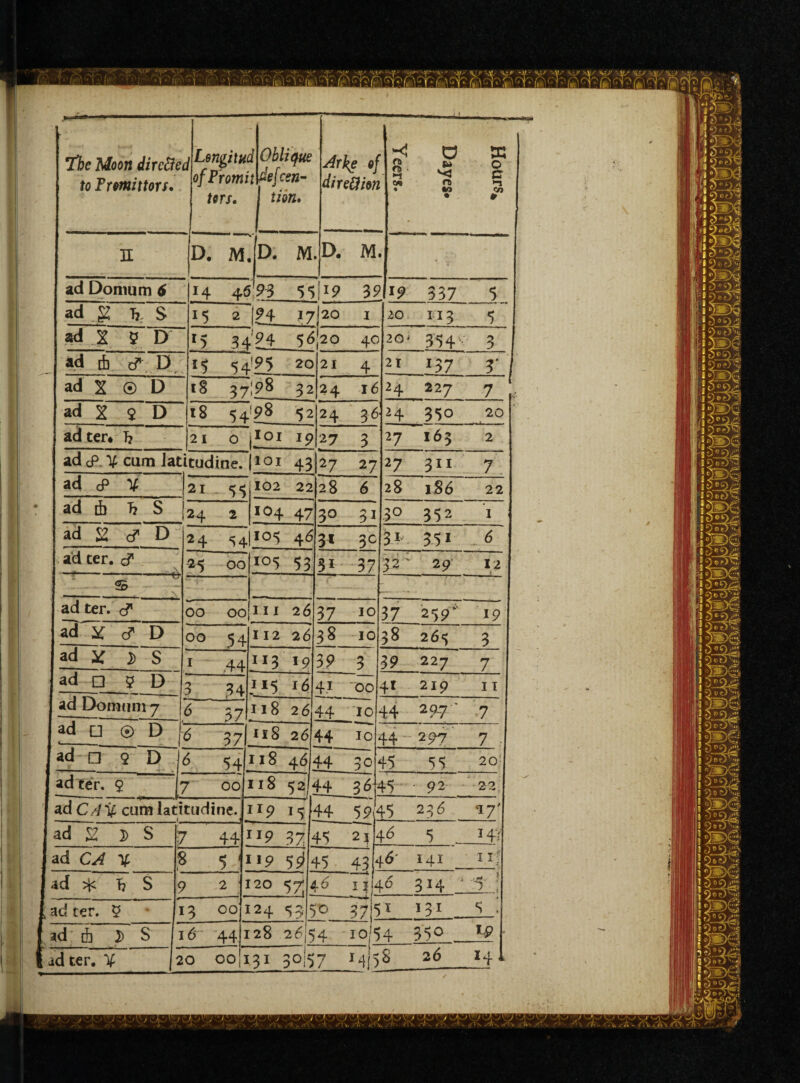 The Moon directed to Promittors. | Longitud of Promittors. | Oblique descention. | Arke of direction | Yeers. Dayes. Hours.
♊ | D. M. | D. M. | D. M.
ad Domum 6 | 14 46 | 93 55 | 19 39 | 19 337 5
ad ♎ ♄ S | 15 2 | 94 17 | 20 1 | 20 113 5
ad ☿ D | 15 34 | 94 56 | 20 40 | 20 354 3
ad ♂ D | 15 54 | 95 20 | 21 4 | 21 137 3
ad ☉ D | 18 37 | 98 32 | 24 16 | 24 227 7
ad ♀ D | 18 54 | 98 52 | 24 36 | 24 350 20
ad ter. ♄ | 21 0 | 101 19 | 27 3 | 27 163 2
ad ☍ ♃ cum latitudine. | 101 43 | 27 27 | 27 311 7
ad ☍ ♃ | 21 55 | 102 22 | 28 6 | 28 186 22
ad ♄ S | 24 2 | 104 47 | 30 31 | 30 352 1
ad ♂ D | 24 54 | 105 46 | 31 30 | 31 351 6
ad ter. ♂ | 25 00 | 105 53 | 31 37 | 32 29 12
♋
ad ter. ♂ | 00 00 | 111 26 | 37 10 | 37 259 19
ad ♂ D | 00 54 | 112 26 | 38 10 | 38 265 3
ad ☽ S | 1 44 | 113 19 | 39 3 | 39 227 7
ad □ ☿ D | 3 34 | 115 16 | 41 00 | 41 219 11
ad Domum 7 | 6 37 | 118 26 | 44 10 | 44 297 7
ad □ ☉ D | 6 37 | 118 26 | 44 10 | 44 297 7
ad □ ♀ D | 6 54 | 118 46 | 44 30 | 45 55 20
ad ter. ♀ | 7 00 | 118 52 | 44 36 | 45 92 22
ad CA ♃ cum latitudine. | 119 15 | 44 59 | 45 236 17
ad ☽ S | 7 44 | 119 37 | 45 21 | 46 5 14
ad CA ♃ | 8 5 | 119 59 | 45 43 | 46 141 11
ad ⚹ ♄ S | 9 2 | 120 57 | 46 11 | 46 314 5
ad ter. ☿ | 13 00 | 124 53 | 50 37 | 51 131 5
ad ☽ S | 16 44 | 128 26 | 54 10 | 54 350 19
ad ter. ♃ | 20 00 | 131 30 | 57 14 | 58 26 14